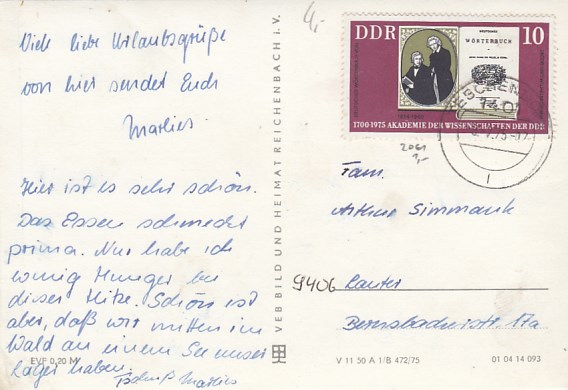 Viele liebe Urlaubsgrüße
von hier sendet Euch
Marlies.
Hier ist es sehr schön.
Das Essen schmeckt
prima. Nur habe ich
wenig Hunger bei
dieser Hitze. Schön ist
aber, daß wir mitten im
Wald an einem See unser
Lager haben.
Tschüß Marlies
EVP 0,20 M
VEB BILD UND HEIMAT REICHENBACH I. V.
4,-
DDR
10
WÖRTERBUCH
1700-1975 AKADEMIE DER WISSENSCHAFTEN DER DDR
2061
1,-
Fam.
Arthur Simmank
9406 Lauter
Bernsbacherstr. 17a
V 11 50 A 1/B 472/75
01 04 14 093